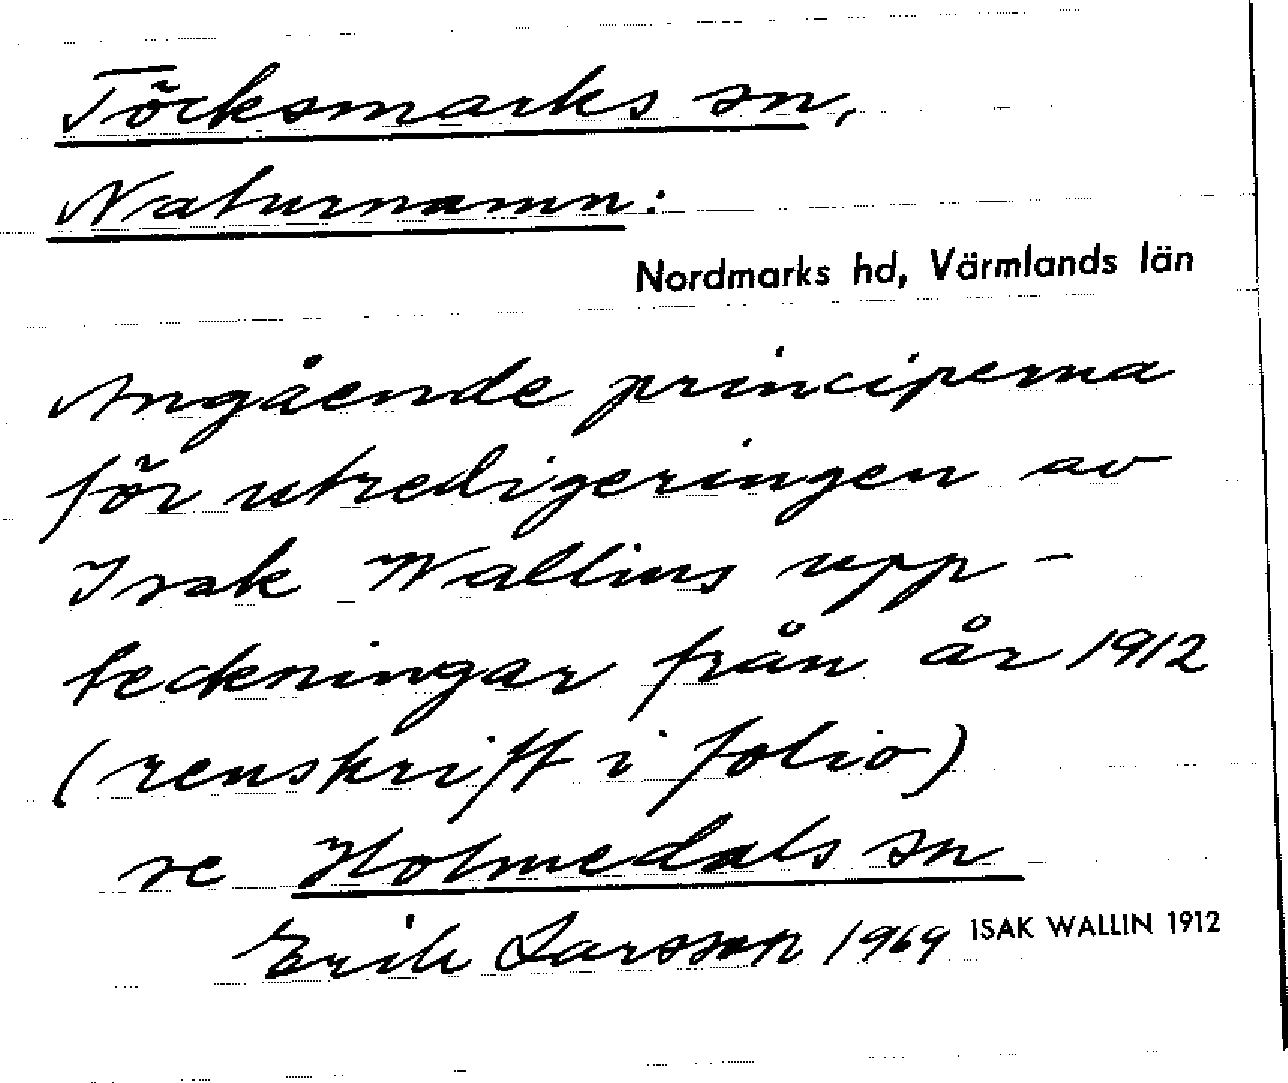 Töcksmarks sn,
Naturnamn:
Nordmarks hd, Värmlands län
Angående principerna
för utredigeringen av
Isak Wallins upp-
teckningar från år 1912
(renskrift i folio)
se Holmedals sn
Erik Larsson 1969 ISAK WALLIN 1912